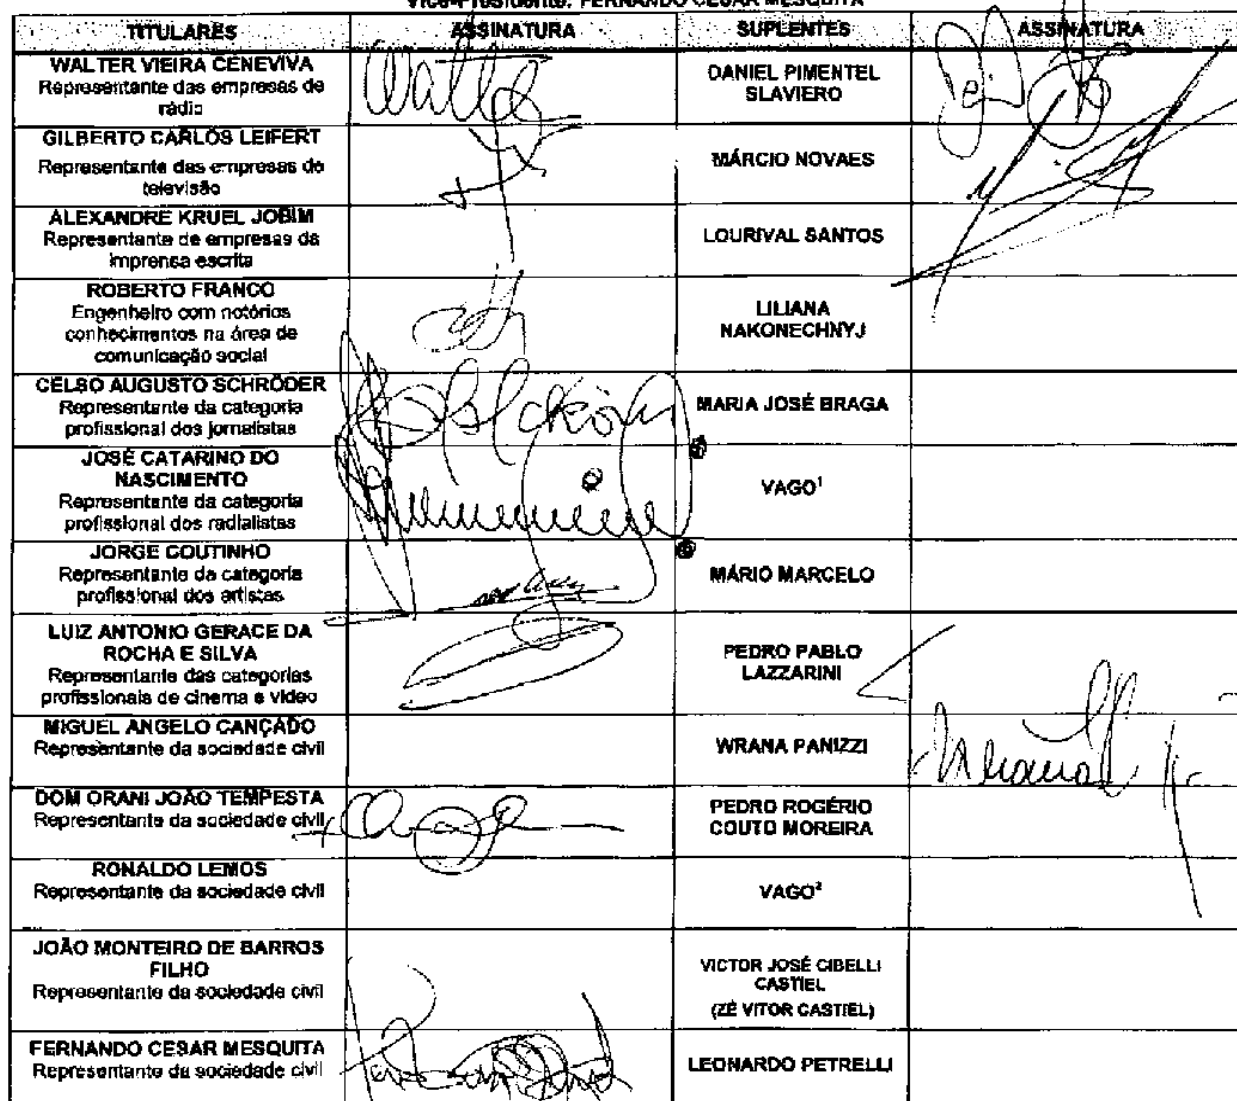 Vice-Presidente: FERNANDO CESAR MESQUITA
TITULARES ASSINATURA SUPLENTES ASSINATURA
WALTER VIEIRA CENEVIVA
Representante das empresas de
rádio
DANIEL PIMENTEL
SLAVIERO
GILBERTO CARLOS LEIFERT
Representante das empresas de
televisão
MÁRCIO NOVAES
ALEXANDRE KRUEL JOBIM
Representante de empresas da
imprensa escrita
LOURIVAL SANTOS
ROBERTO FRANCO
Engenheiro com notórios
conhecimentos na área de
comunicação social
LILIANA
NAKONECHNYJ
CELSO AUGUSTO SCHRÖDER
Representante da categoria
profissional dos jornalistas
MARIA JOSÉ BRAGA
JOSÉ CATARINO DO
NASCIMENTO
Representante da categoria
profissional dos radialistas
VAGO¹
JORGE COUTINHO
Representante da categoria
profissional dos artistas
MÁRIO MARCELO
LUIZ ANTONIO GERACE DA
ROCHA E SILVA
Representante das categorias
profissionais de cinema e vídeo
PEDRO PABLO
LAZZARINI
MIGUEL ANGELO CANÇADO
Representante da sociedade civil
WRANA PANIZZI
DOM ORANI JOÃO TEMPESTA
Representante da sociedade civil
PEDRO ROGÉRIO
COUTO MOREIRA
RONALDO LEMOS
Representante da sociedade civil
VAGO²
JOÃO MONTEIRO DE BARROS
FILHO
Representante da sociedade civil
VICTOR JOSÉ CIBELLI
CASTIEL
(ZÉ VITOR CASTIEL)
FERNANDO CESAR MESQUITA
Representante da sociedade civil
LEONARDO PETRELLI